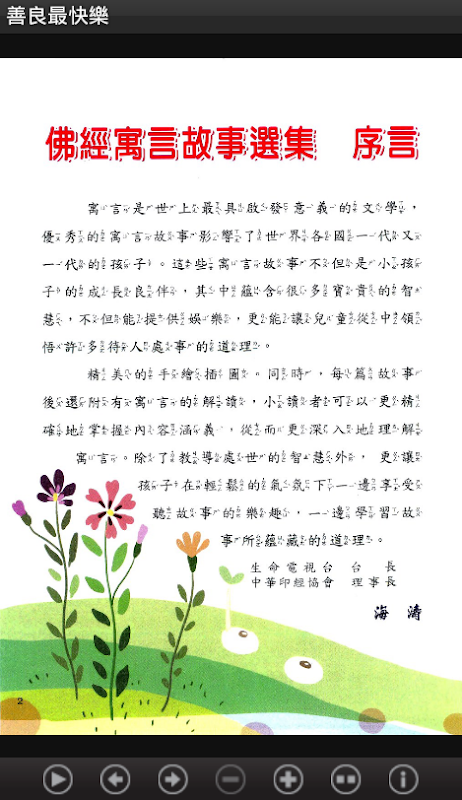 善良最快樂
佛經寓言故事選集 序言
寓言是世上最具啟發意義的文學，
優秀的寓言故事影響了世界各國一代又
一代的孩子。這些寓言故事不但是小孩
子的成長良伴，其中蘊含很多寶貴的智
慧，不但能提供娛樂，更能讓兒童從中領
悟許多待人處事的道理。
精美的手繪插圖。同時，每篇故事
後還附有寓言的解讀，小讀者可以更精
確地掌握內容涵義，從而更深入地理解
寓言。除了教導處世的智慧外，更讓
孩子在輕鬆的氣氛下一邊享受
聽故事的樂趣，一邊學習故
事所蘊藏的道理。
生命電視台 台長
中華印經協會 理事長
海濤
2